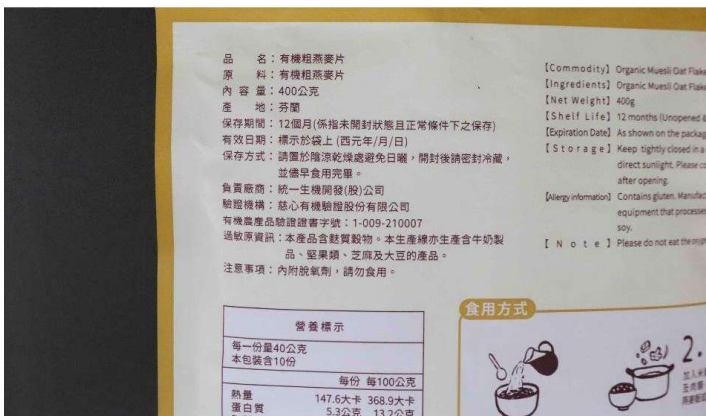 品　　名：有機粗燕麥片
原　　料：有機粗燕麥片
內 容 量：400公克
產　　地：芬蘭
保存期間：12個月(係指未開封狀態且正常條件下之保存)
有效日期：標示於袋上 (西元年/月/日)
保存方式：請置於陰涼乾燥處避免日曬，開封後請密封冷藏，
並儘早食用完畢。
負責廠商：統一生機開發(股)公司
驗證機構：慈心有機驗證股份有限公司
有機農產品驗證證書字號：1-009-210007
過敏原資訊：本產品含麩質穀物。本生產線亦生產含牛奶製
品、堅果類、芝麻及大豆的產品。
注意事項：內附脫氧劑，請勿食用。
【Commodity】 Organic Muesli Oat Flake
【Ingredients】 Organic Muesli Oat Flake
【Net Weight】 400g
【Shelf Life】 12 months (Unopened &
【Expiration Date】 As shown on the packag
【Storage】 Keep tightly closed in a
direct sunlight. Please
after opening.
【Allergy information】 Contains gluten. Manufac
equipment that processes
soy.
【Note】 Please do not eat the
營養標示
每一份量40公克
本包裝含10份
每份 每100公克
熱量 147.6大卡 368.9大卡
蛋白質 5.3公克 13.2公克
食用方式
2.
加入米